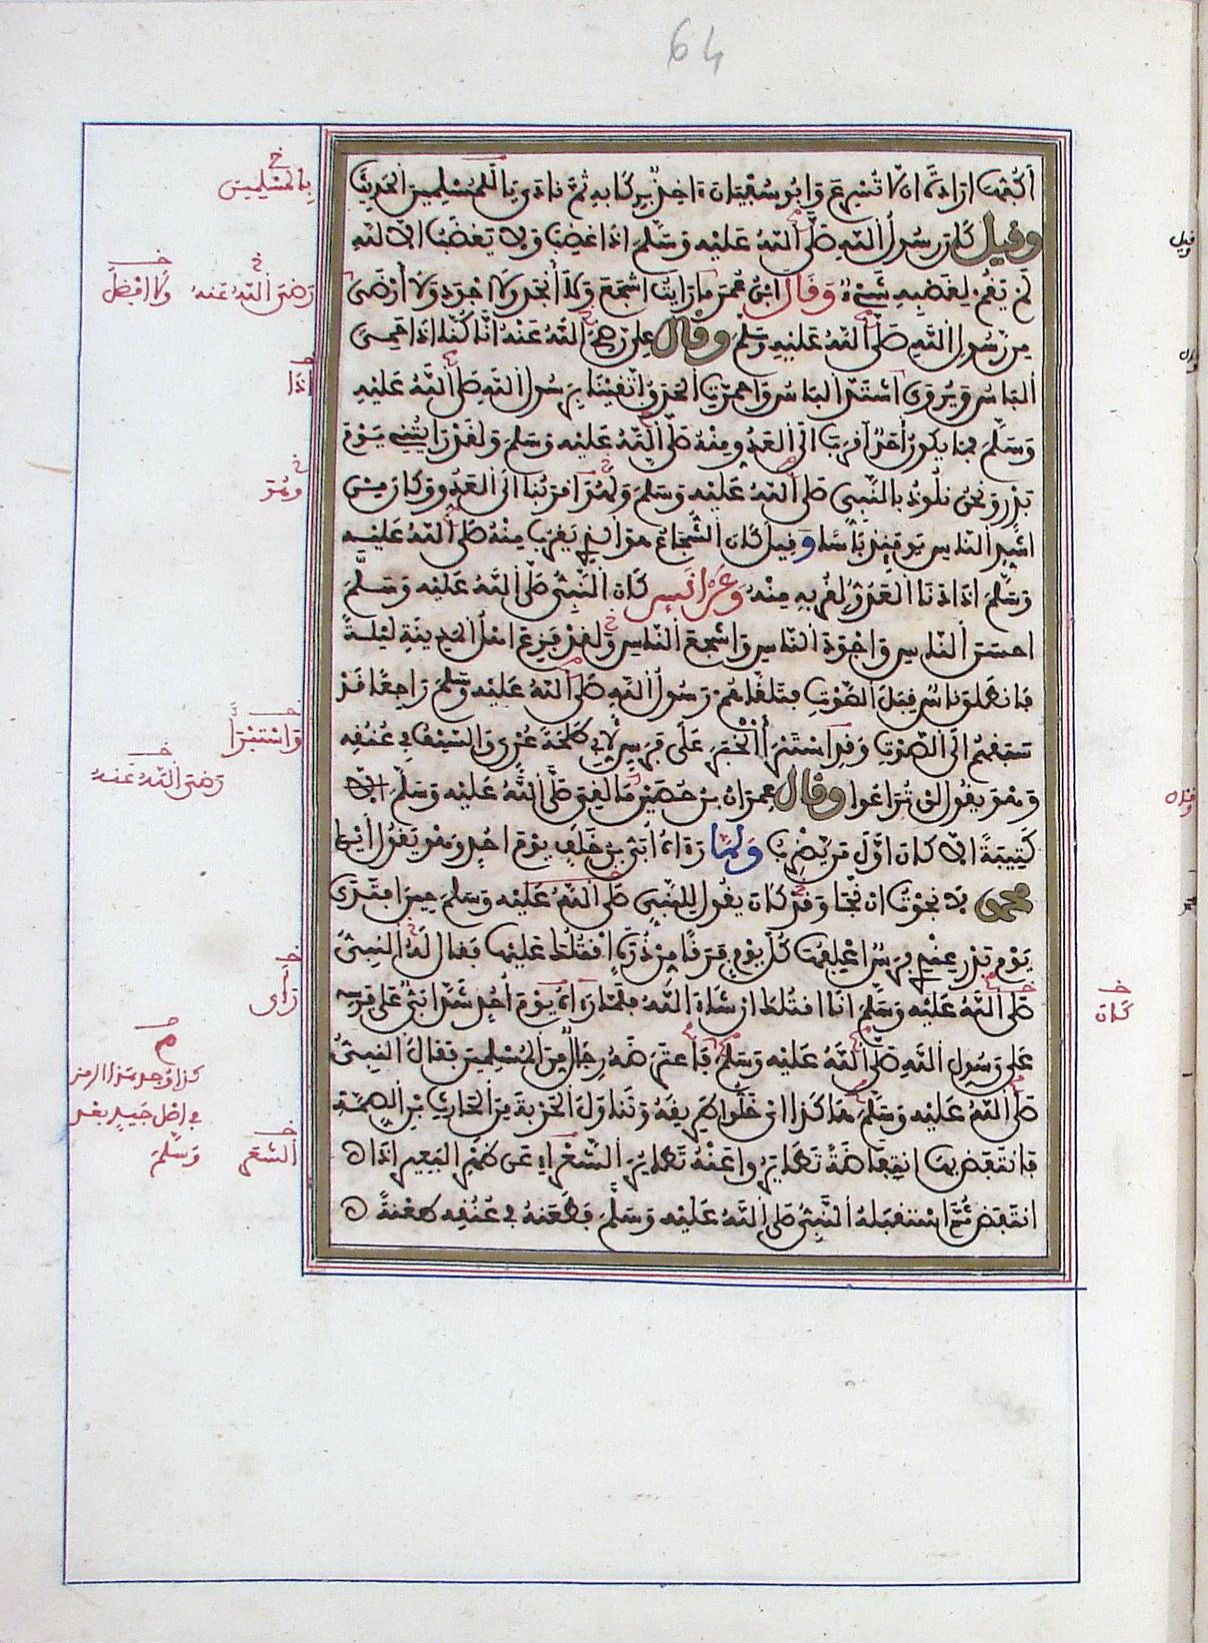 64
أكفها ارادة ان لا تسرع وابو سفيان ءاخذ بركابه ثم نادى يا للمسلمين الحديث
وقيل كان رسول الله صلى الله عليه وسلم اذا غضب ولا يغضب الا لله
لم يقم لغضبه شيء وقال ابن عمر ما رايت اشجع ولا أنجد ولا اجود ولا أرضى
من رسول الله صلى الله عليه وسلم وقال علي رضي الله عنه انا كنا اذا حمي
البأس ويروى اشتد البأس واحمرت الحدق اتقينا برسول الله صلى الله عليه
وسلم فما يكون أحد أقرب الى العدو منه صلى الله عليه وسلم ولقد رايتني يوم
بدر ونحن نلوذ بالنبي صلى الله عليه وسلم وهو اقربنا الى العدو وكان من
اشد الناس يومئذ بأسا وقيل كان الشجاع هو الذي يقرب منه صلى الله عليه
وسلم اذا دنا العدو لقربه منه وعن انس كان النبي صلى الله عليه وسلم
احسن الناس واجود الناس واشجع الناس ولقد فزع اهل المدينة ليلة
فانطلق ناس قبل الصوت فتلقاهم رسول الله صلى الله عليه وسلم راجعا قد
سبقهم الى الصوت وقد استبرأ الخبر على فرس لأبي طلحة عري والسيف في عنقه
وهو يقول لن تراعوا وقال عمران بن حصين ما لقي صلى الله عليه وسلم
كتيبة الا كان اول من يضرب ولما رءاه ابي بن خلف يوم احد وهو يقول أين
محمد لا نجوت ان نجا وقد كان يقول للنبي صلى الله عليه وسلم حين افتدى
يوم بدر عندي فرس اعلفها كل يوم فرقا من ذرة اقتلك عليها فقال له النبي
صلى الله عليه وسلم انا اقتلك ان شاء الله فلما رءاه يوم أحد شد أبي على فرسه
على رسول الله صلى الله عليه وسلم فاعترضه رجال من المسلمين فقال النبي
صلى الله عليه وسلم هكذا اي خلوا طريقه وتناول الحربة من الحارث بن الصمة
فانتفض بها انتفاضة تطايروا عنه تطاير الشعراء عن ظهر البعير اذا
انتفض ثم استقبله النبي صلى الله عليه وسلم فطعنه في عنقه طعنة
بالمسلمين
رضي الله عنه
ولا افضل
اذا
وهو
واستبرأ
رضي الله عنه
رأى
كان
كذا وجد هذا الرمز
في اصل
بعد
وسلم
الشعر